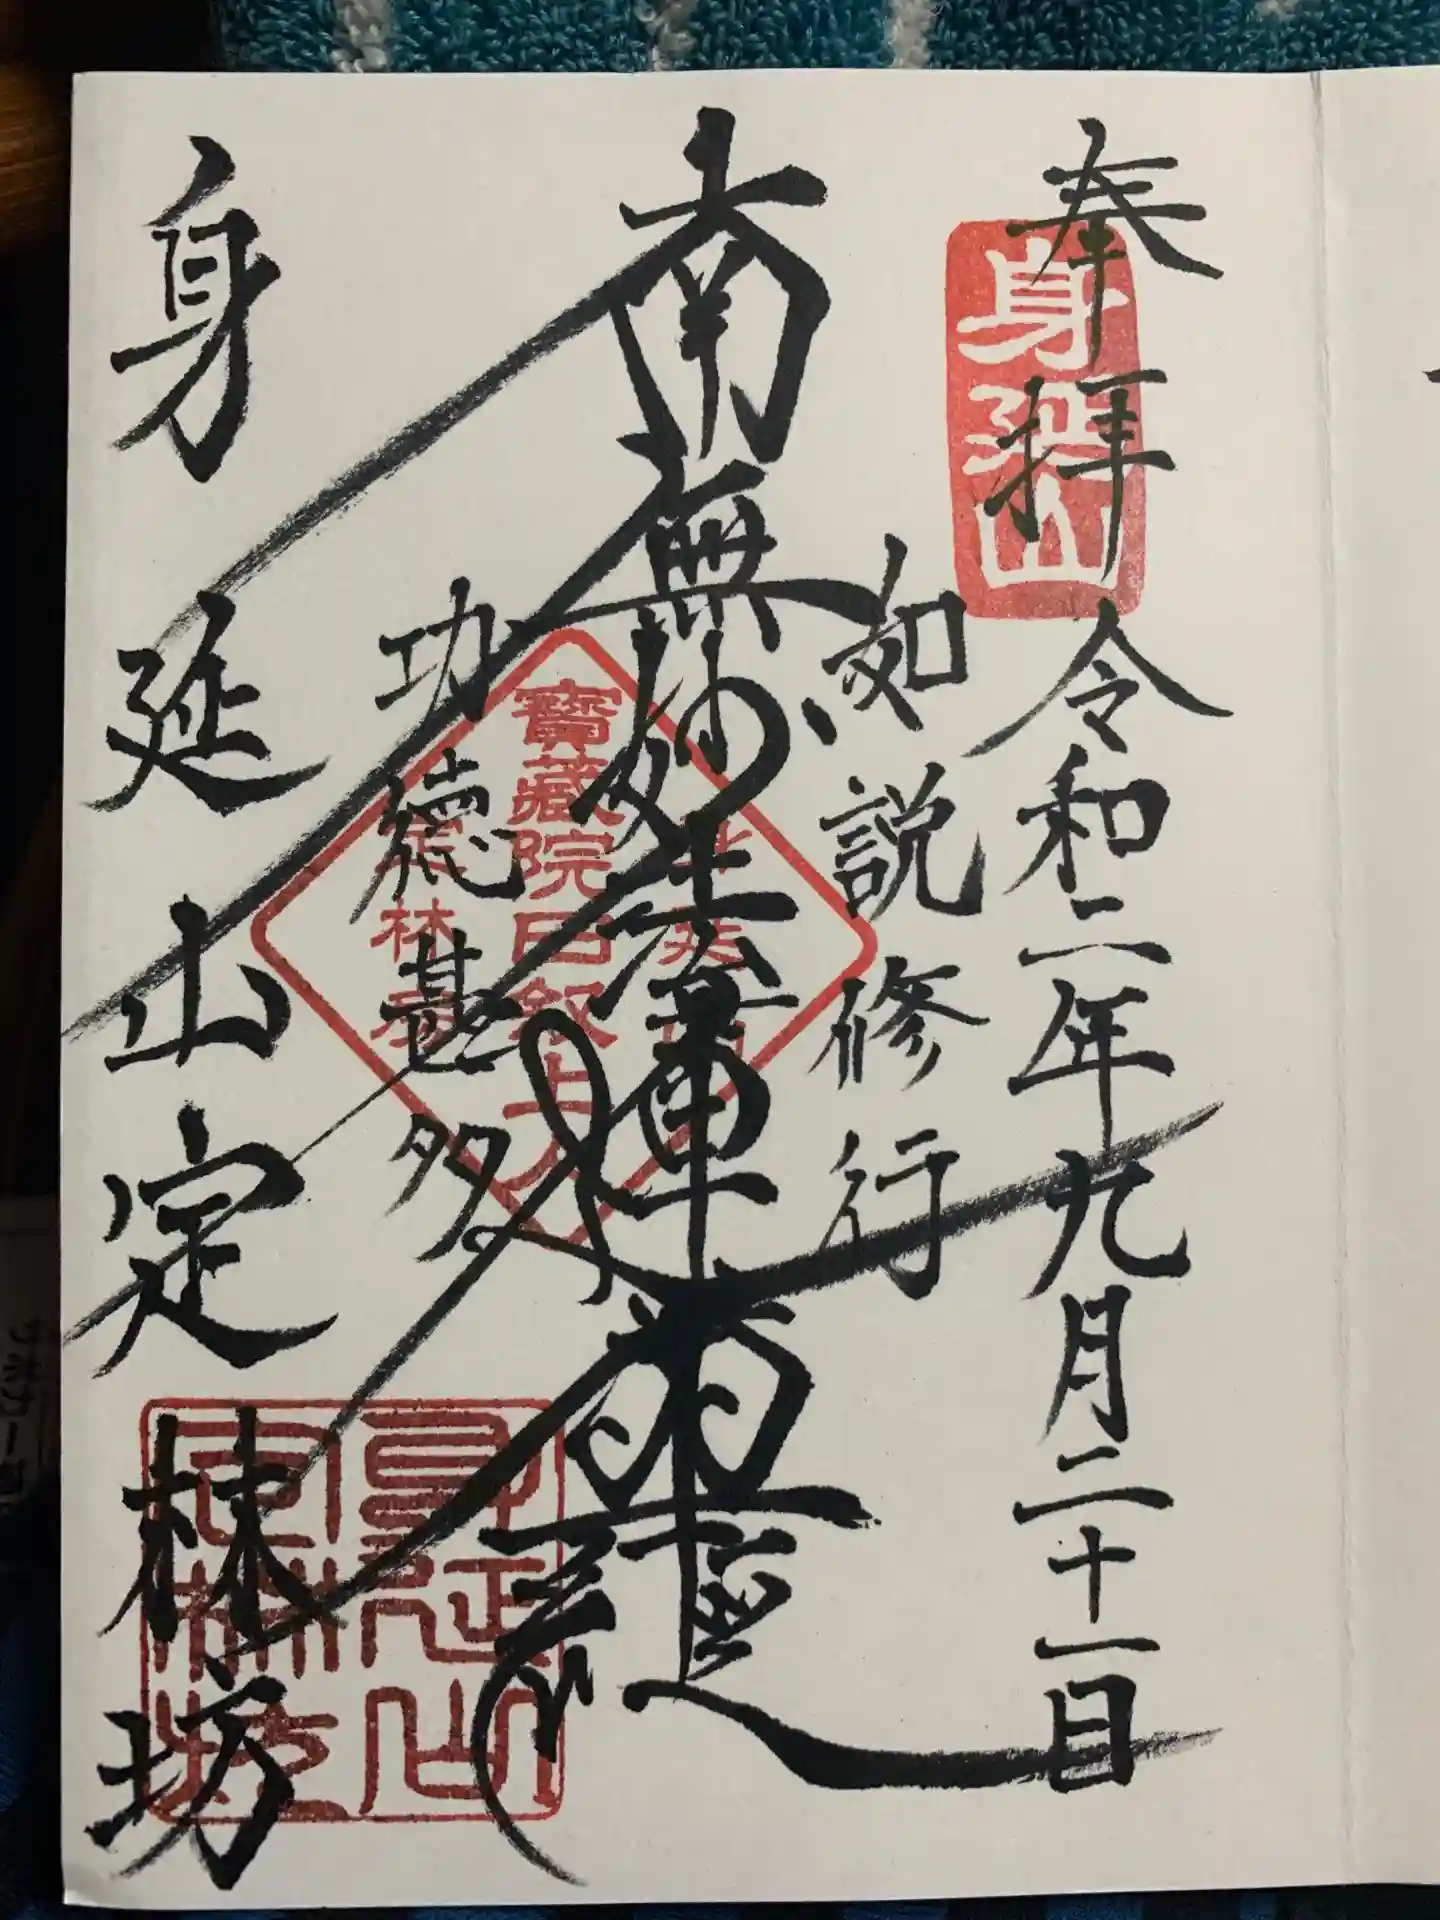 奉拝 令和二年九月二十一日
身延山
如説修行
南無妙法蓮華経
寶藏院日叙上人
功徳甚多
定林房
身延山定林坊
身延山定林坊